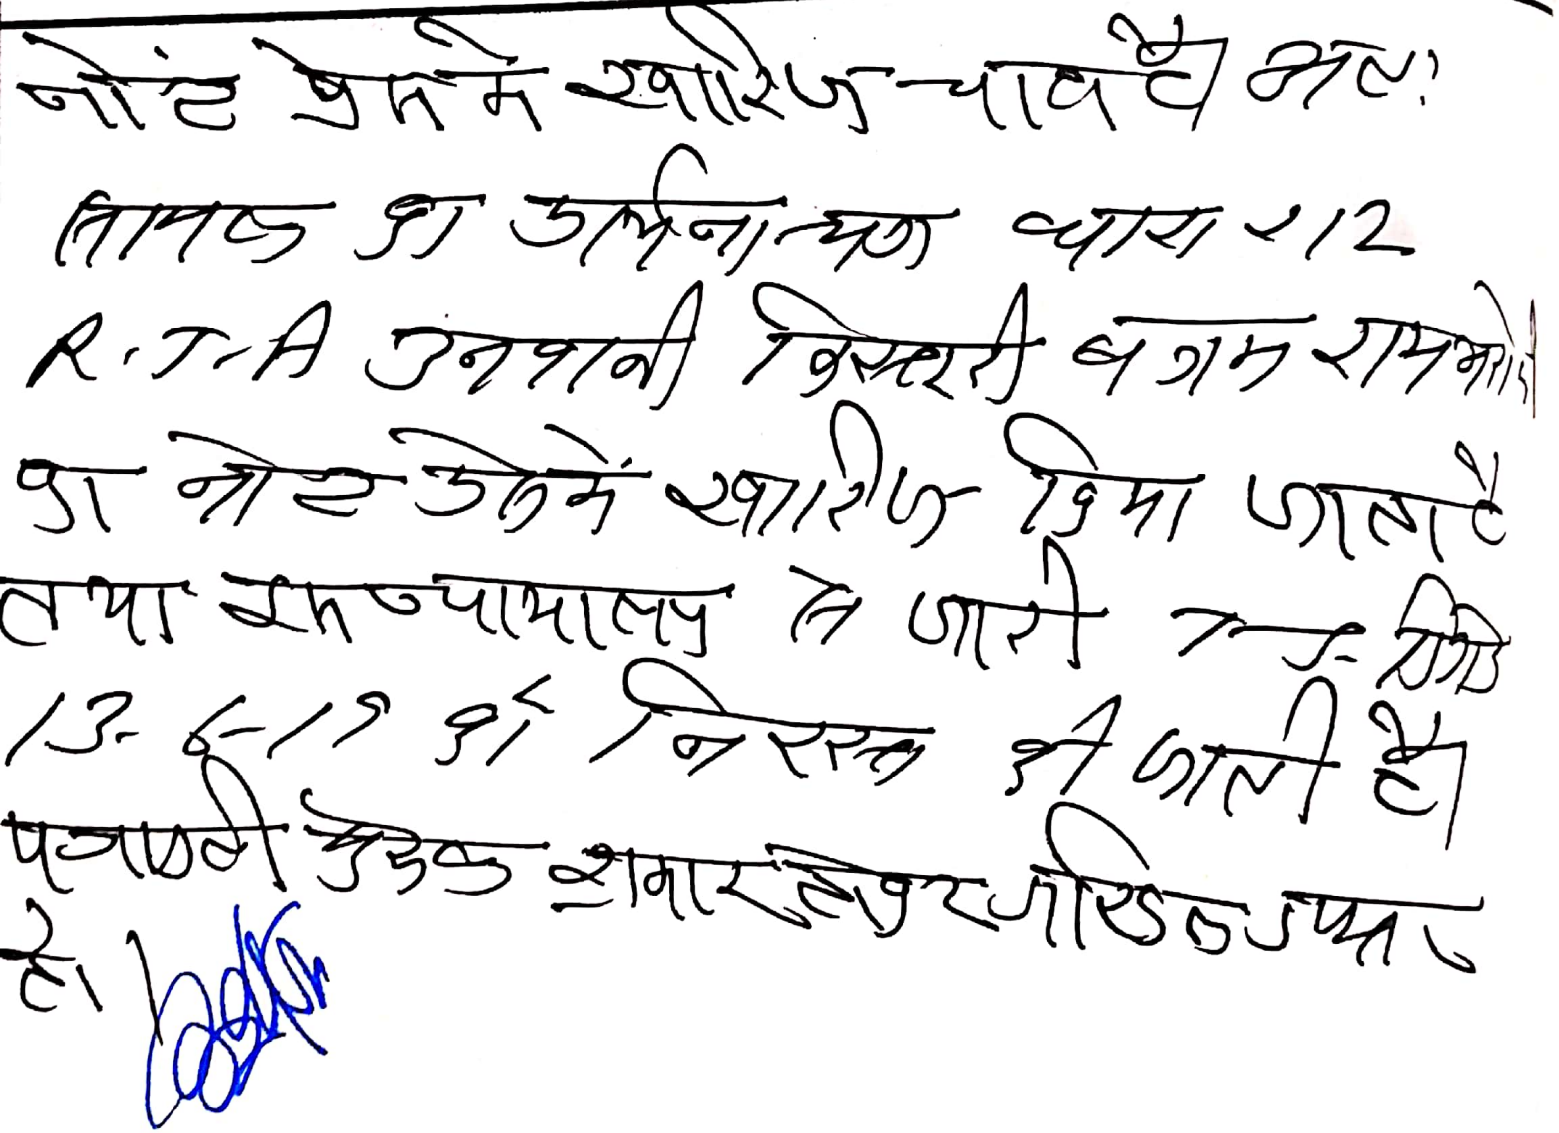 नोट प्रेस में खारिज चाहते है। अतः
का प्रार्थना पत्र धारा 212
R.T.A उनवानी बनाम राम
का नोट प्रेस में खारिज किया जाता है
तथा इस न्यायालय से जारी T.I. दिनांक
13-6-19 को निरस्त की जाती है।
पत्रावली फैसल शुमार होकर दाखिल दफ्तर
हो।